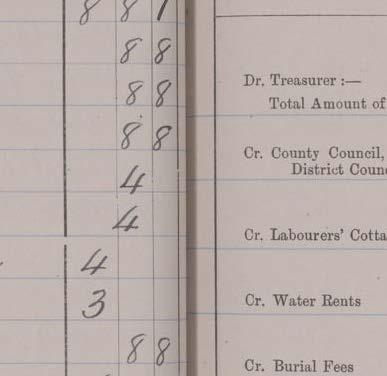 8 8 1
8 8
8 8
8 8
4
4
4
3
8 8
Dr. Treasurer :—
Total Amount of
Cr. County Council,
District Coun
Cr. Labourers' Cotta
Cr. Water Rents
Cr. Burial Fees